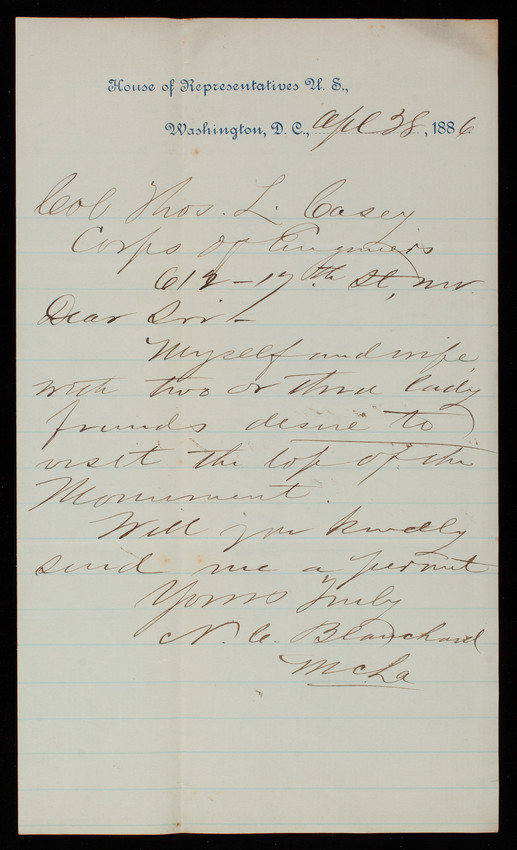 House of Representatives U. S.,
Washington, D. C., Apl 28, 1886
Col Thos. L. Casey
Corps of Engineers
612 - 17th St, NW.
Dear Sir -
Myself and wife,
with two or three lady
friends desire to
visit the top of the
Monument.
Will you kindly
send me a permit
Yours Truly
N. C. Blanchard
MC La